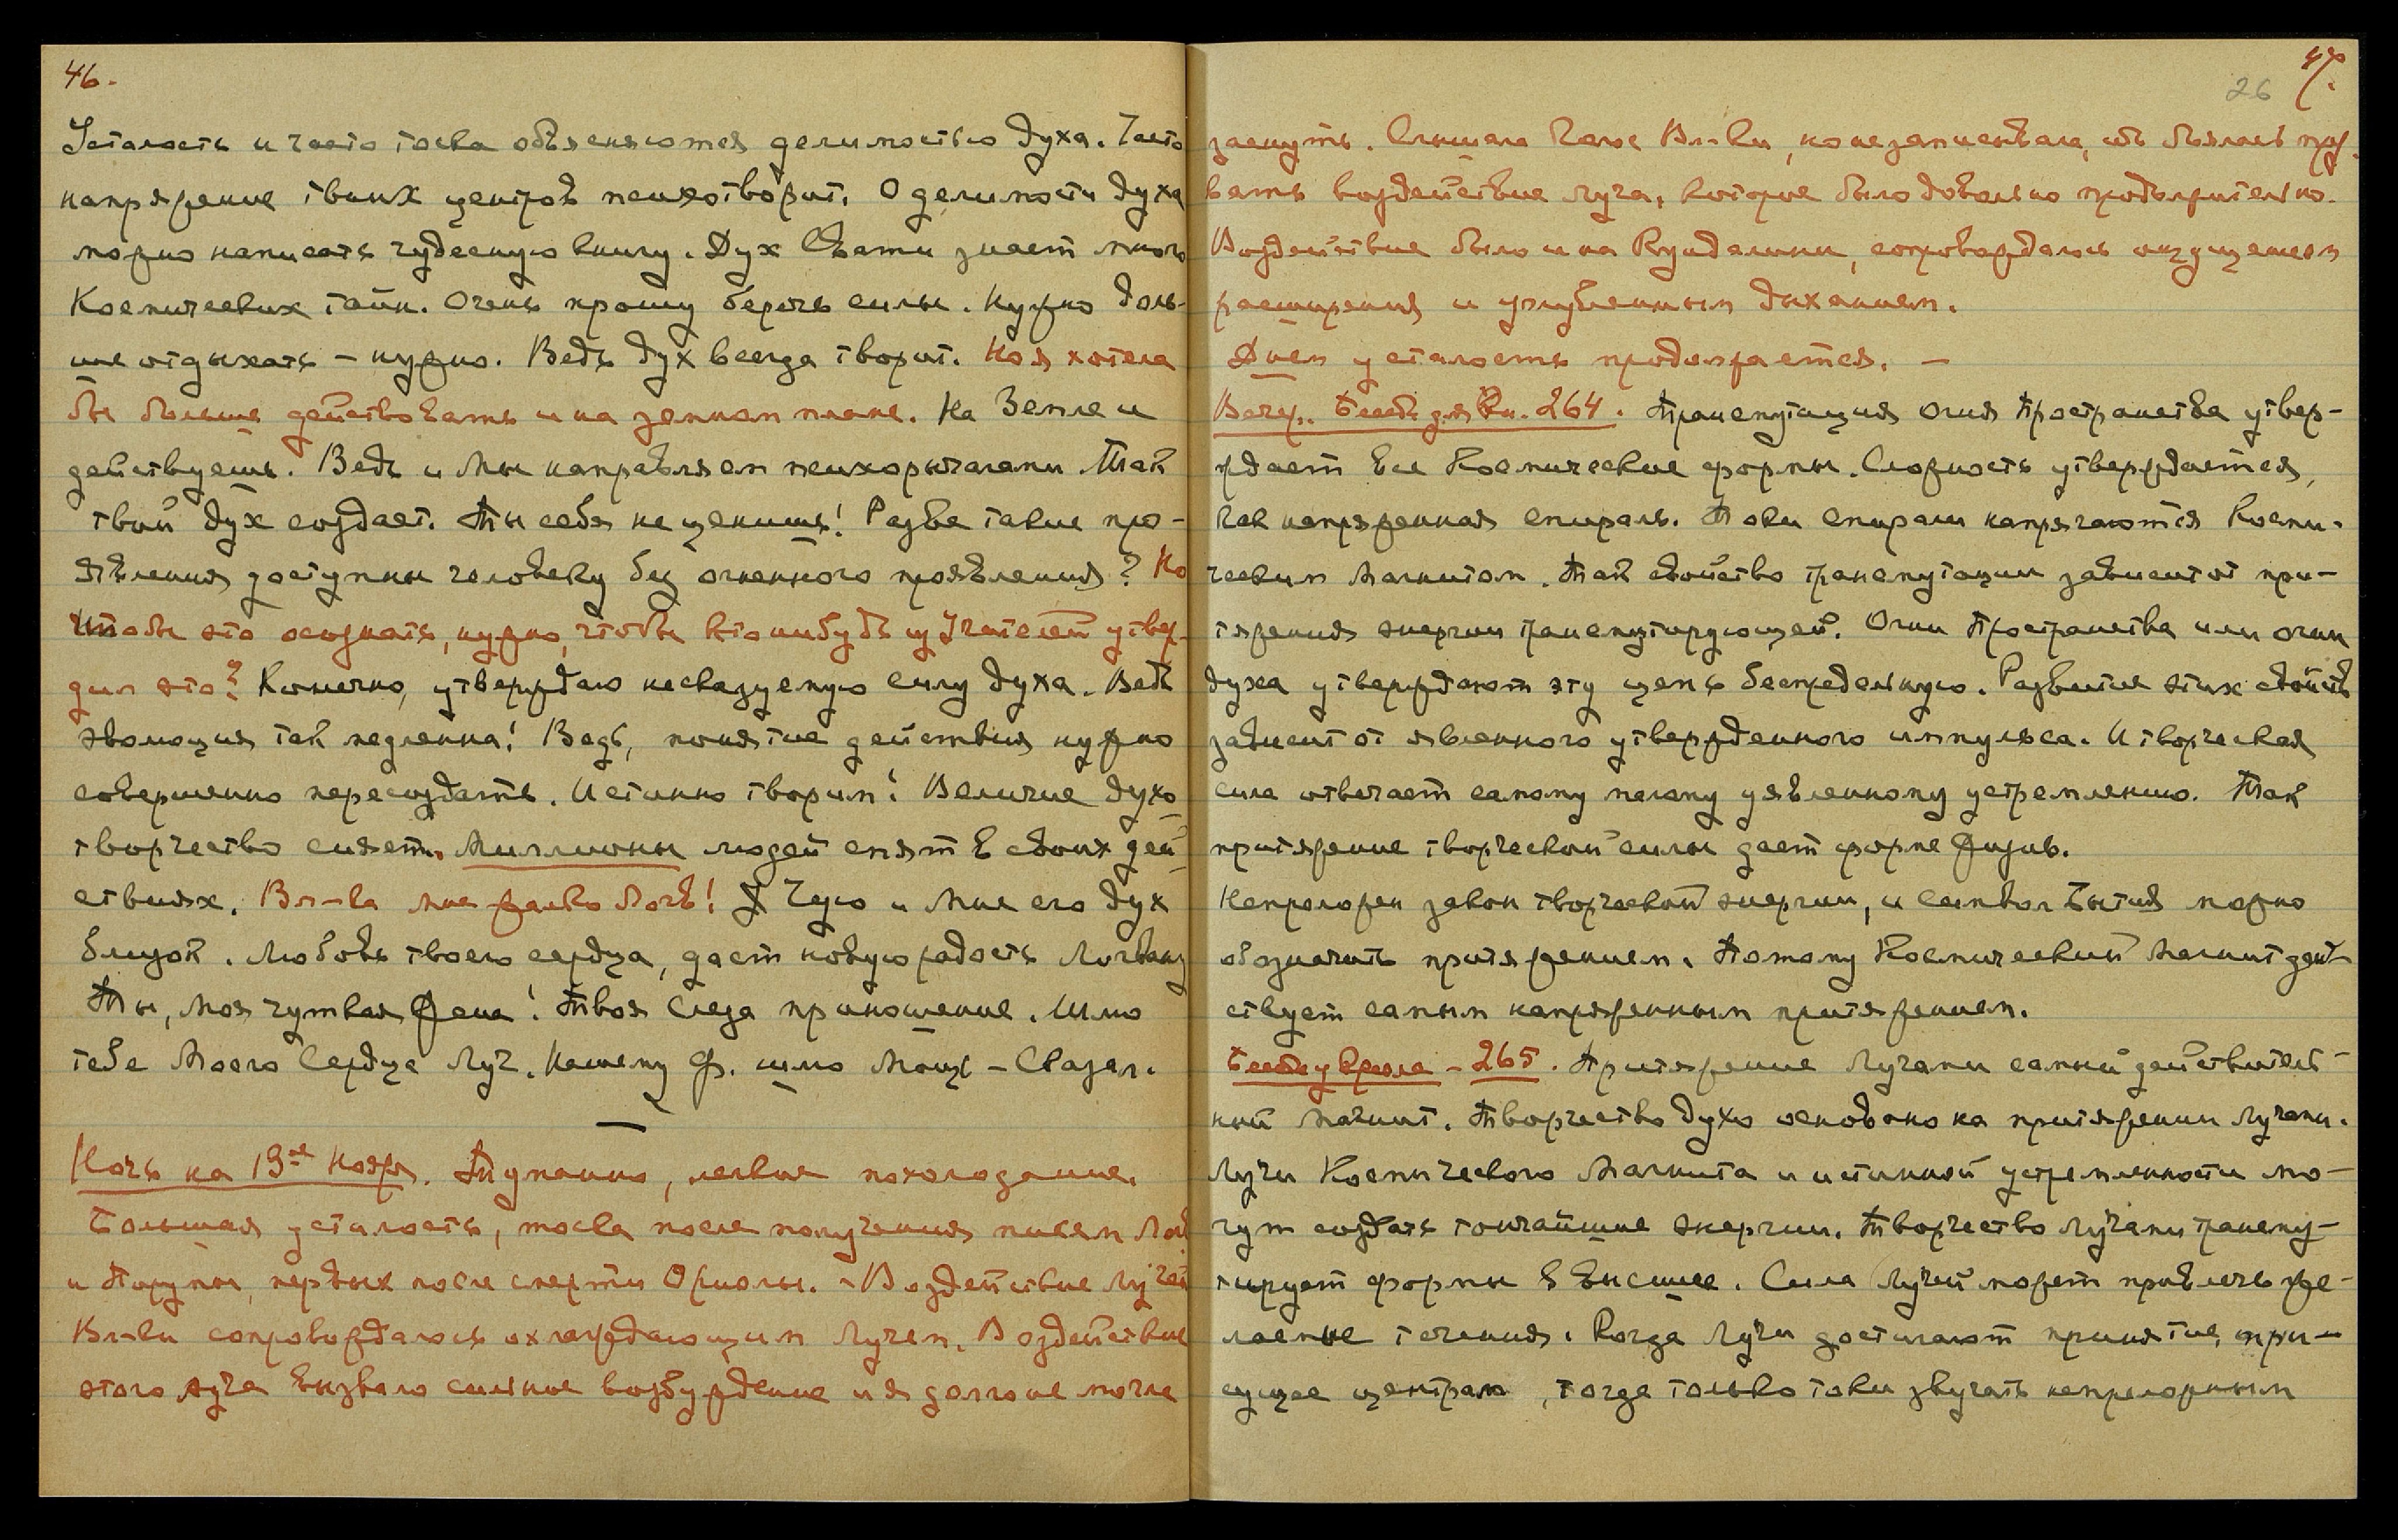 46.
Усталость и часто тоска объясняются делимостью духа. Часто
напряжение твоих центров психотворит. О делимости духа
можно написать чудесную книгу. Дух Свати знает много
Космических тайн. Очень прошу беречь силы. Нужно доль-
ше отдыхать – нужно. Ведь дух всегда творит. Но я хотела
бы больше действовать и на земном плане. На Земле и
действуешь. Ведь и Мы направляем психорычагами. Так
твой дух создает. Ты себя не ценишь! Разве такие про-
явления доступны человеку без огненного проявления? Но
чтобы это осознать, нужно, чтобы кто нибудь из Учителей утвер-
дил это? Конечно, утверждаю несказуемую силу духа. Ведь
эволюция так медленна! Ведь, понятие действия нужно
совершенно пересоздать. Истинно творим! Величие духо-
творчества сияет. Миллионы людей спят в своих дей-
ствиях. Вл-ка мне жалко Логв! Я Чую и Мне его дух
близок. Любовь твоего сердца, даст новую радость Логвану
Ты, Моя чуткая Жена! Твоя Слеза приношение. Шлю
тебе Моего Сердца Луч. Нашему Ф. шлю Мощь – Сказал.
Ночь на 19-ое Нояб. Туманно, легкое похолодание.
Большая усталость, тоска после получения писем Лог.
и Порумы, первых после смерти Ориолы. – Воздействие Лучей
Вл-ки сопровождалось охлаждающим Лучем. Воздействие
этого луча вызвало сильное возбуждение и я долго не могла
47.
26
заснуть. Слышала Голос Вл-ки, но не записывала, ибо боялась прер-
вать воздействие луча, которое было довольно продолжительно.
Воздействие было и на Кундалини, сопровождалось ощущением
расширения и углубленным дыханием.
Днем усталость продолжается. –
Вечер. Бесед. для Кн. 264. Трансмутация огня Пространства утвер-
ждает все Космические формы. Сложность утверждается,
как напряженная спираль. Токи спирали напрягаются Косми-
ческим Магнитом. Так свойство трансмутации зависит от при-
тяжения энергии трансмутирующей. Огни Пространства или огни
духа утверждают эту цепь беспредельную. Развитие этих свойств
зависит от явленного утвержденного импульса. И творческая
сила отвечает самому малому уявленному устремлению. Так
притяжение творческой силы дает форме Жизнь.
Непреложен закон творческой энергии, и символ Бытия можно
обозначить притяжением. Потому Космический Магнит дей-
ствует самым напряженным притяжением.
Беседа у Кресла – 265. Притяжение Лучами самый действитель-
ный Магнит. Творчество духа основано на притяжении Лучами.
Лучи Космического Магнита и истинной устремленности мо-
гут создать тончайшие энергии. Творчество Лучами трансму-
тирует формы в Высшее. Сила Лучей может привлечь же-
лаемые течения. Когда Лучи достигают принятие, при-
сущее центрам, тогда только токи звучат непреложным